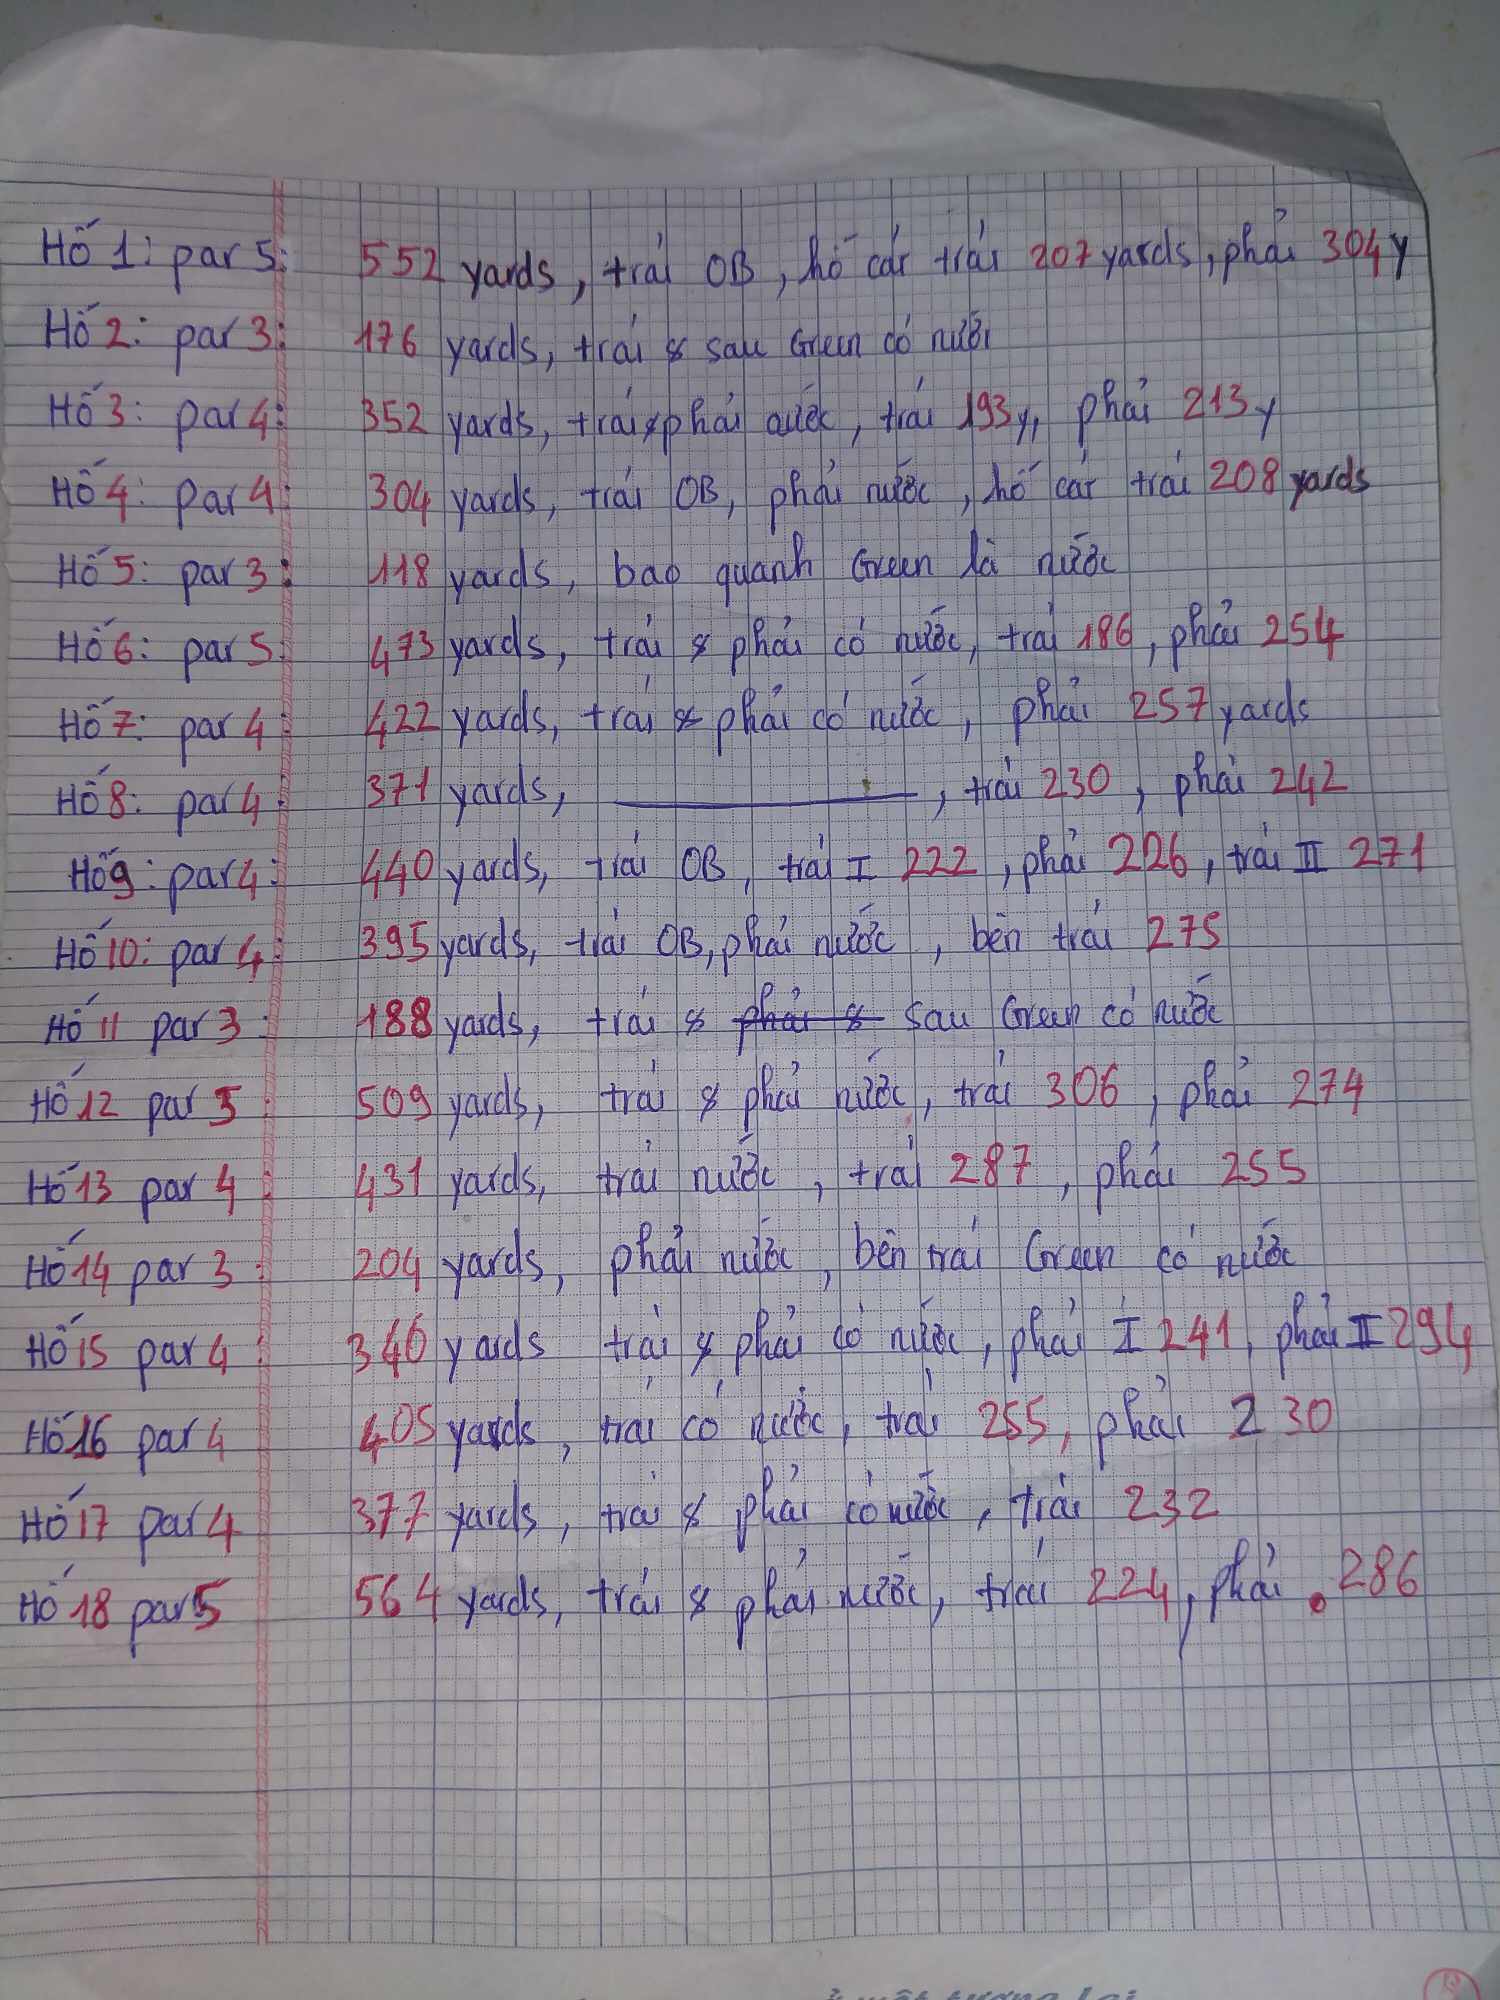 Hố 1: par 5: 552 yards, trái OB, hố cát trái 207 yards, phải 304y
Hố 2: par 3: 176 yards, trái & sau Green có nước
Hố 3: par 4: 352 yards, trái & phải nước, trái 193y, phải 213y
Hố 4: par 4: 304 yards, trái OB, phải nước, hố cát trái 208 yards
Hố 5: par 3: 118 yards, bao quanh Green là nước
Hố 6: par 5: 473 yards, trái & phải có nước, trái 186, phải 254
Hố 7: par 4: 422 yards, trái & phải có nước, phải 257 yards
Hố 8: par 4: 371 yards, , trái 230, phải 242
Hố 9: par 4: 440 yards, trái OB, trái I 222, phải 226, trái II 271
Hố 10: par 4: 395 yards, trái OB, phải nước, bên trái 275
Hố 11 par 3: 188 yards, trái & phải & sau Green có nước
Hố 12 par 5: 509 yards, trái & phải nước, trái 306, phải 274
Hố 13 par 4: 431 yards, trái nước, trái 287, phải 255
Hố 14 par 3: 204 yards, phải nước, bên trái Green có nước
Hố 15 par 4: 346 yards trái & phải có nước, phải I 241, phải II 294
Hố 16 par 4 405 yards, trái có nước, trái 255, phải 230
Hố 17 par 4 377 yards, trái & phải có nước, trái 232
Hố 18 par 5 564 yards, trái & phải nước, trái 224, phải 286